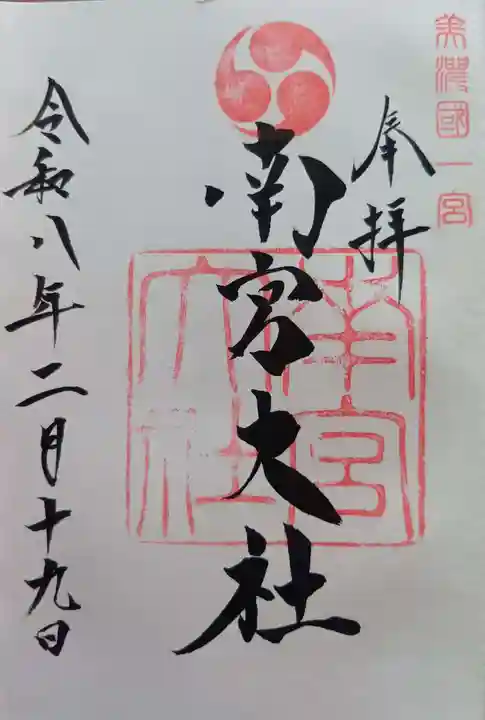 美濃國一宮
奉拝
南宮大社
南宮
大社
令和八年二月十九日